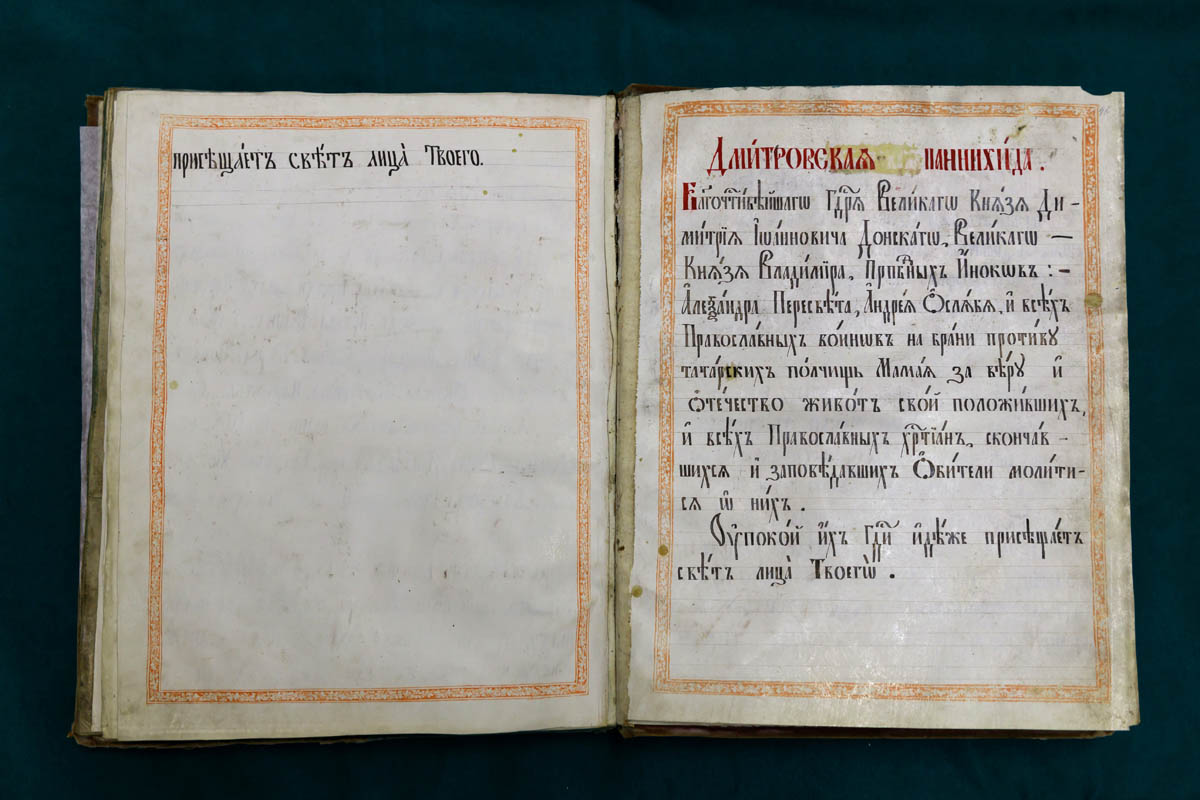 присѣща́етъ свѣ́тъ лица̀ Твоего.
Дми́тровская паннихи́да.
Бл҃гочеⷭ҇тивѣ́йшагѡ Гдⷭ҇рѧ Вели́кагѡ Кнѧ́зѧ Ди-
ми́трїѧ Іѡа́нновича Донска́гѡ, Вели́кагѡ —
Кнѧ́зѧ Влади́мїра, Прпⷣбныхъ И҆́нокѡвъ : –
А҆леѯа́ндра Пересвѣ́та, А҆ндре́ѧ Ѻ҆слѧ́бѧ, и҆ всѣ́хъ
Правосла́вныхъ во́инѡвъ на бра́ни проти́ву
тата́рскихъ по́лчищь Мама́ѧ за вѣ́ру и҆
ѻ҆те́чество живо́тъ сво́й положи́вшихъ,
и҆ всѣ́хъ Правосла́вныхъ хрⷭ҇тїа́нъ, сконча́в-
шихсѧ и҆ заповѣ́давшихъ Ѻ҆би́тели моли́ти-
сѧ ѡ҆ ни́хъ.
Оу҆поко́й и҆̀хъ Гдⷭ҇и и҆дѣ́же присѣща́етъ
свѣ́тъ лица̀ Твоегѡ̀.